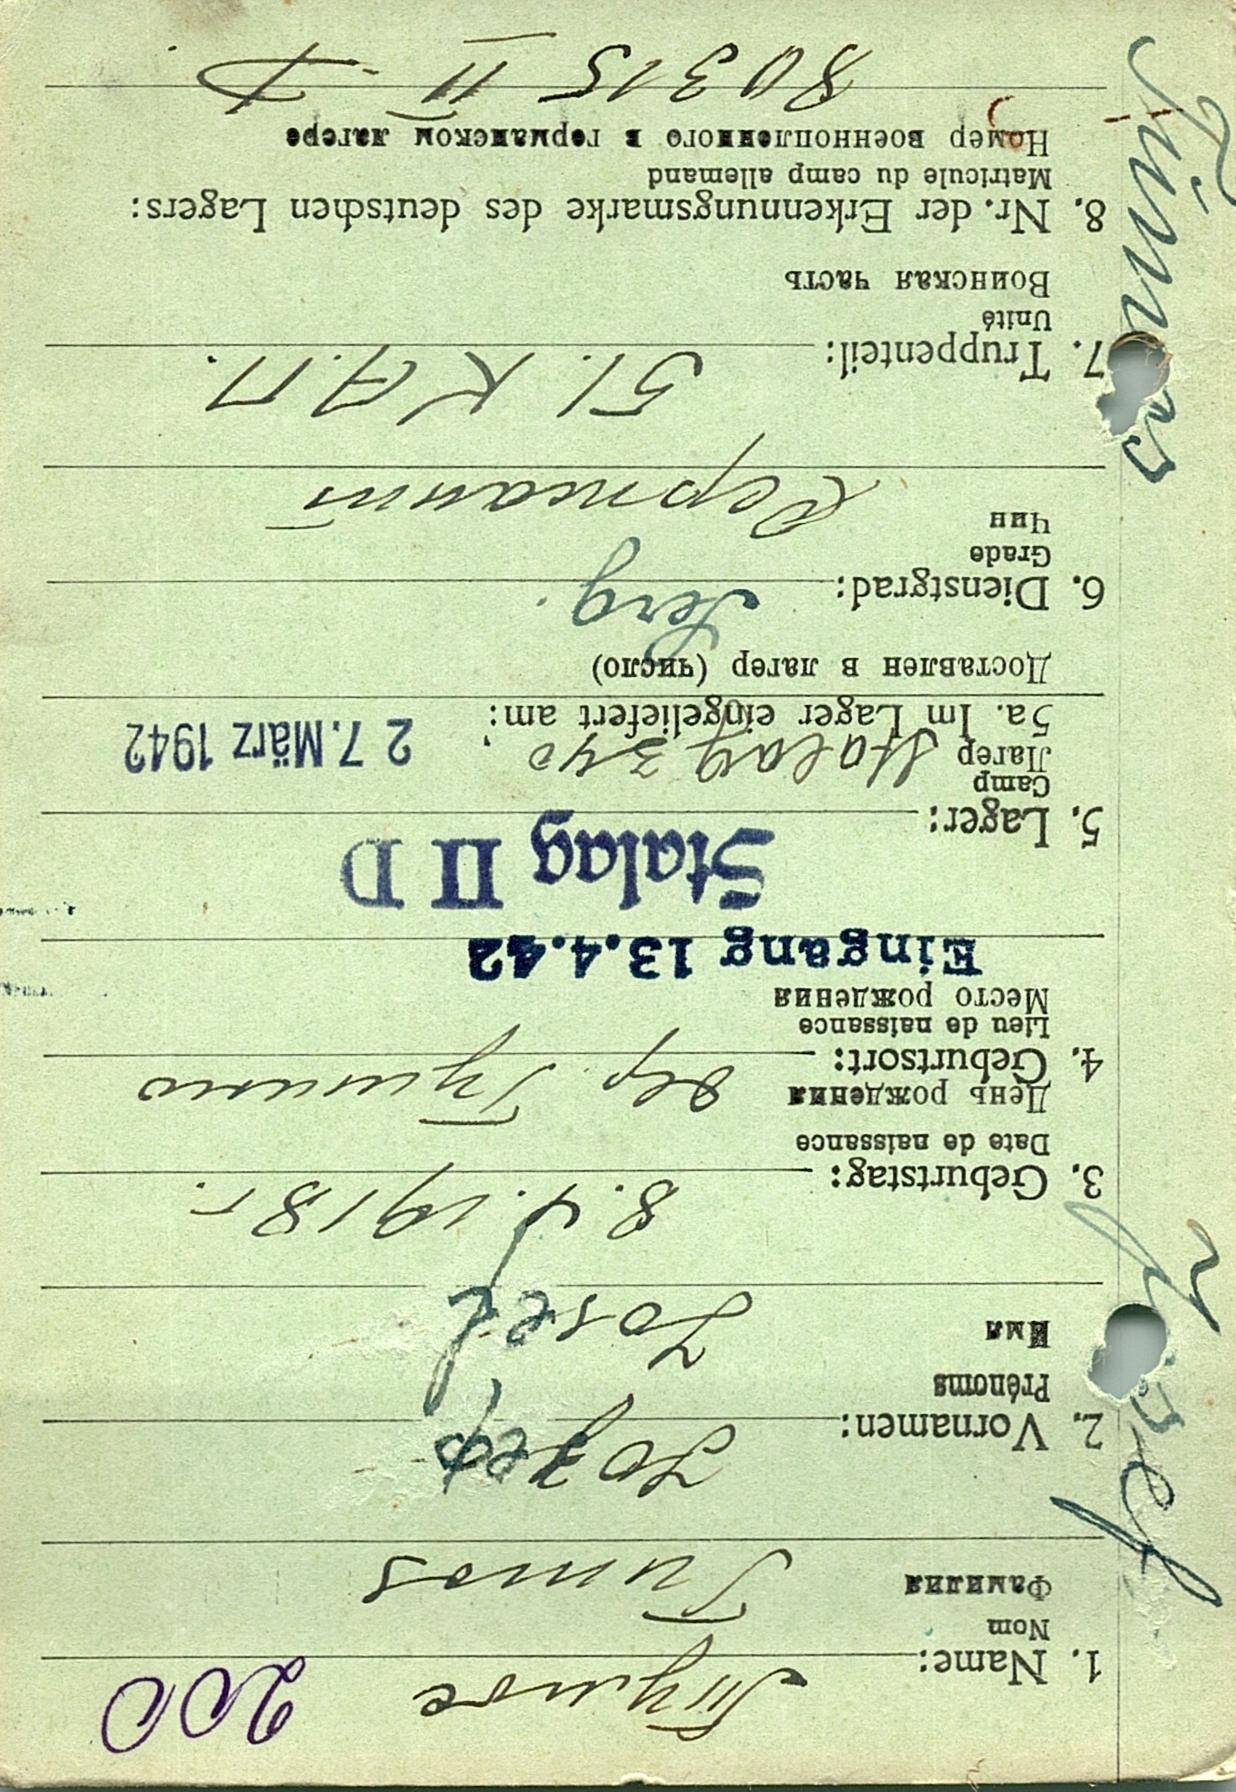 200
1. Name:
Nom
Фамилия
Tumas
2. Vornamen: Jozef
Prénoms
Имя
Josef
3. Geburtstag: 8. V. 1918 г.
Date de naissance
День рождения
4. Geburtsort: дер.
Lieu de naissance
Место рождения
Eingang 13.4.42
Stalag II D
5. Lager:
Camp
Лагер Stalag 340
27. März 1942
5a. Im Lager eingeliefert am:
Доставлен в лагер (число)
6. Dienstgrad: Serg.
Grade
Чин
Сержант
7. Truppenteil: 51. К А.П.
Unité
Воинская часть
8. Nr. der Erkennungsmarke des deutschen Lagers:
Matricule du camp allemand
Номер военнопленного в германском лагере
80315 II D
Josef
Tumas